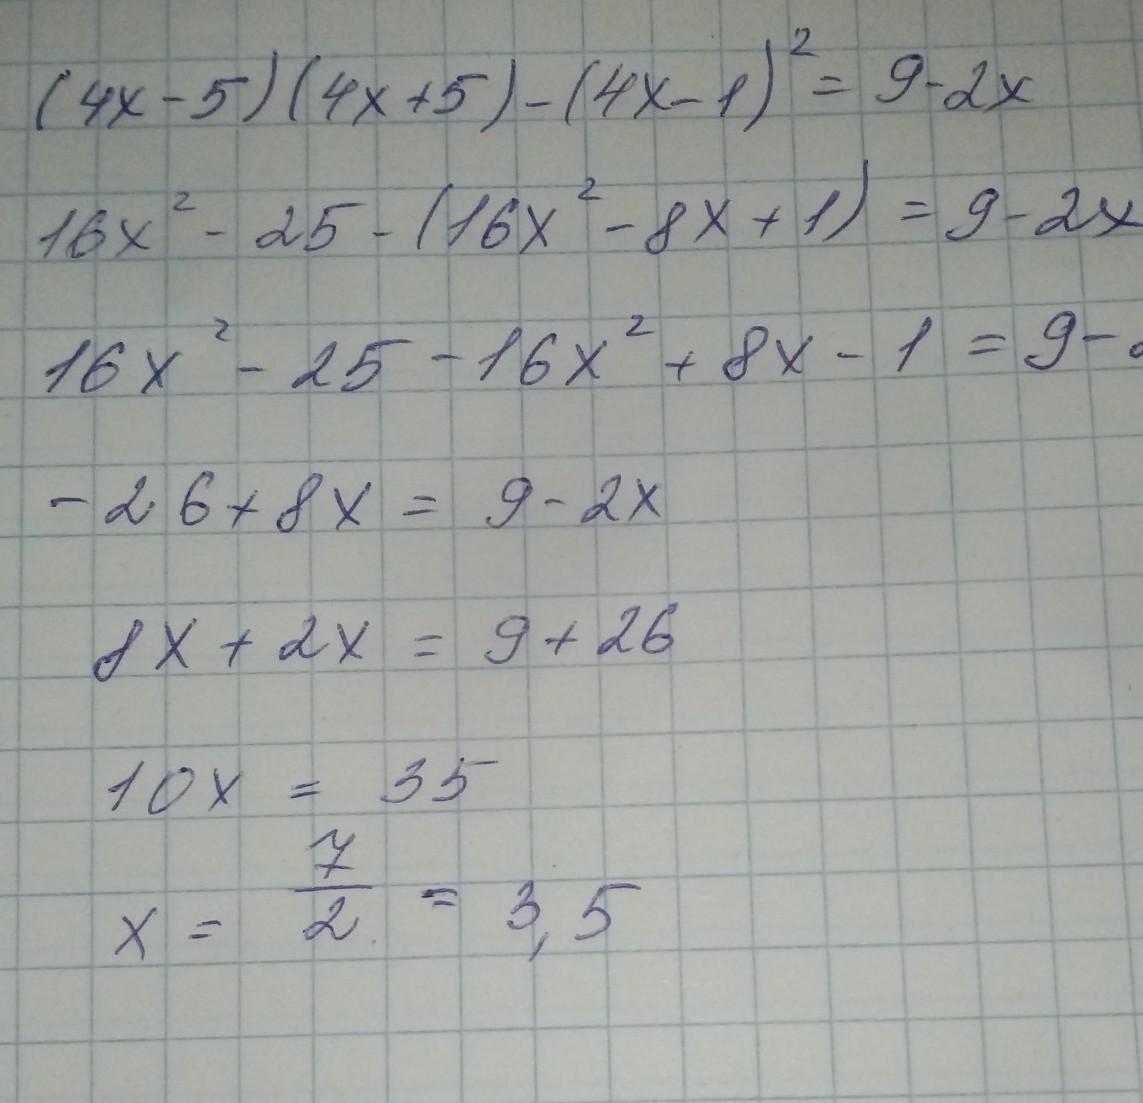 (4x-5)(4x+5)-(4x-1)²=9-2x
16x²-25-(16x²-8x+1)=9-2x
16x²-25-16x²+8x-1=9-
-26+8x=9-2x
8x+2x=9+26
10x=35
x=7/2=3,5